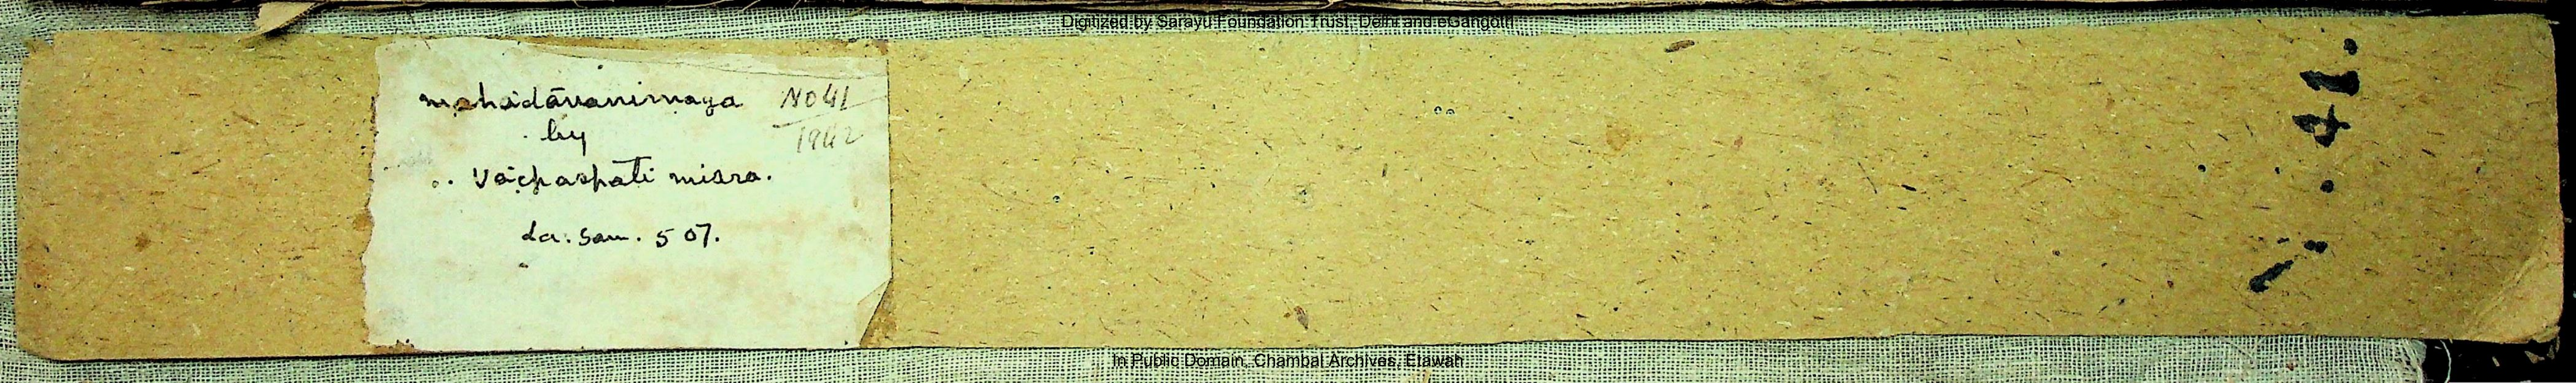 Digitized by Sarayu Foundation Trust, Delhi and eGangotri
mahādānanirṇaya
No 41
1942
by
Vāchaspati misra.
La. Sam. 507.
41.
In Public Domain, Chambal Archives, Etawah